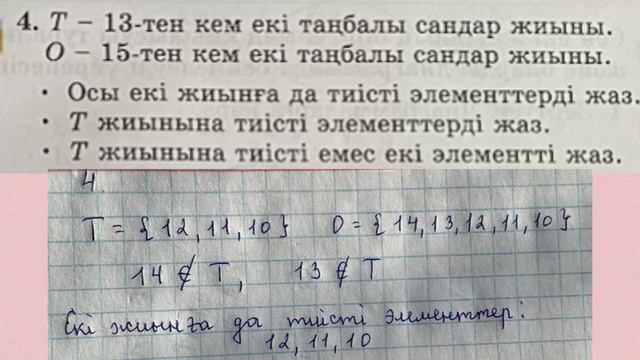 4. T – 13-тен кем екі таңбалы сандар жиыны.
O – 15-тен кем екі таңбалы сандар жиыны.
• Осы екі жиынға да тиісті элементтерді жаз.
• T жиынына тиісті элементтерді жаз.
• T жиынына тиісті емес екі элементті жаз.
4.
T = {12, 11, 10} O = {14, 13, 12, 11, 10}
14 ∉ T, 13 ∉ T
Екі жиынға да тиісті элементтер:
12, 11, 10